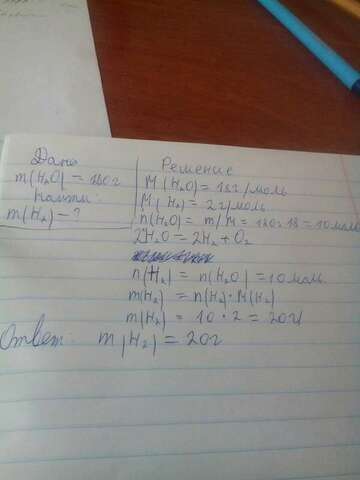 Дано
m(H₂O) = 180г
Найти:
m(H₂) - ?
Решение
M(H₂O) = 18г/моль
M(H₂) = 2г/моль
n(H₂O) = m/M = 180:18 = 10моль
2H₂O = 2H₂ + O₂
n(H₂) = n(H₂O) = 10моль
m(H₂) = n(H₂)·M(H₂)
m(H₂) = 10 · 2 = 20г
Ответ: m(H₂) = 20г